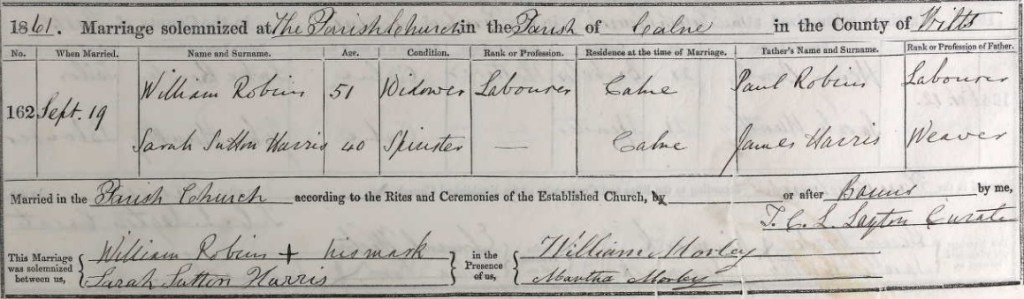 1861. Marriage solemnized at The Parish Church in the Parish of Calne in the County of Wilts
No. When Married. Name and Surname. Age. Condition. Rank or Profession. Residence at the time of Marriage. Father's Name and Surname. Rank or Profession of Father.
William Robins 51 Widower Labourer Calne Paul Robins Labourer
162 Sept. 19
Sarah Sutton Harris 40 Spinster — Calne James Harris Weaver
Married in the Parish Church according to the Rites and Ceremonies of the Established Church, by or after Banns by me,
T. C. L. Layton Curate
This Marriage was solemnized between us,
William Robins + his mark
Sarah Sutton Harris
in the Presence of us,
William Morley
Martha Morley